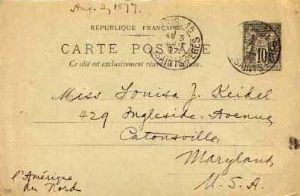 Aug. 3, 1897.
RÉPUBLIQUE FRANÇAISE
CARTE POSTALE
Ce côté est exclusivement
10
Miss Louisa J. Keidel
429 Ingleside Avenue
Catonsville,
Maryland
U.S.A
l'Amérique
du Nord